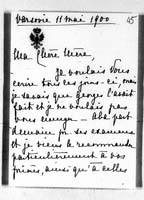 Varsovie 11 mai 1900
45
Ma Chère Mère,
Je voulais vous
écrire tous ces jours-ci, mais
je savais que George l'avait
fait et je ne voulais pas
vous ennuyer - Abé part
demain pr. ses examens
et je viens le recommander
particulièrement à vos
prières, ainsi qu'à celles